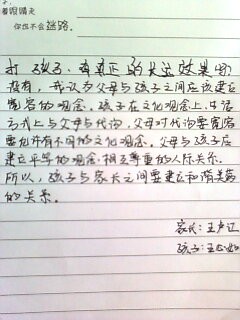 着眼睛走
你也不会迷路。
打孩子,有真正的长远效果吗
没有,我认为父母与孩子之间应该建立
宽容的观念。孩子在文化观念上,生活
方式上与父母与代沟,父母对代沟要宽容
要允许有不同的文化观念。父母与孩子应
建立平等的观念,相互尊重的人际关系。
所以,孩子与家长之间要建立和谐美满
的关系。
家长:王卢江
孩子:王